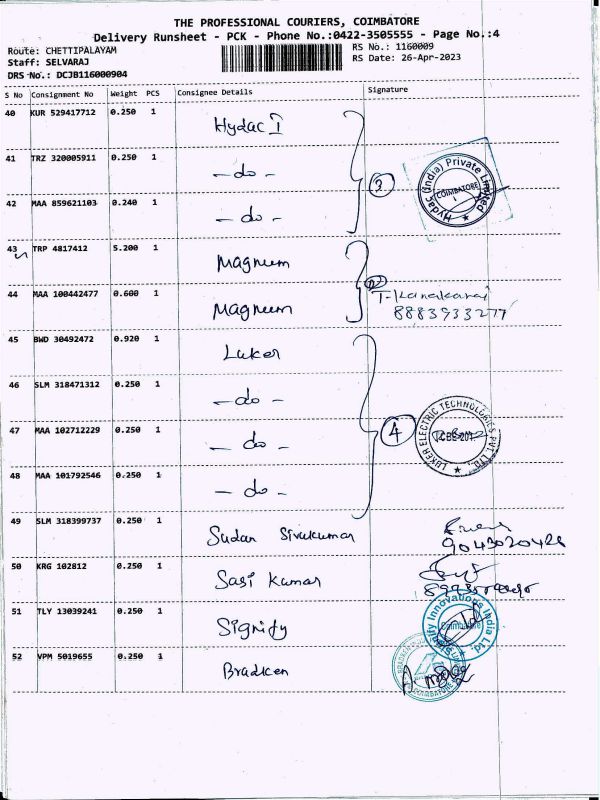 THE PROFESSIONAL COURIERS, COIMBATORE
Delivery Runsheet - PCK - Phone No.:0422-3505555 - Page No.:4
Route: CHETTIPALAYAM
RS No.: 1160009
Staff: SELVARAJ
RS Date: 26-Apr-2023
DRS No.: DCJB116000904
S No Consignment No Weight PCS Consignee Details Signature
40 KUR 529417712 0.250 1 Hydac I
41 TRZ 320005911 0.250 1 - do -
3
Hydac (India) Private Limited
COIMBATORE
42 MAA 859621103 0.240 1 - do -
43 TRP 4817412 5.200 1 Magnum
2
44 MAA 100442477 0.600 1 Magnum T-Kanakaraj
8883933277
45 BWD 30492472 0.920 1 Luker
46 SLM 318471312 0.250 1 - do -
47 MAA 102712229 0.250 1 - do -
4
LUKER ELECTRIC TECHNOLOGIES PVT. LTD.
48 MAA 101792546 0.250 1 - do -
49 SLM 318399737 0.250 1 Sudan Sivakumar
50 KRG 102812 0.250 1 Sasi Kumar
51 TLY 13039241 0.250 1 Signify
Signify Innovations India Ltd.
Coimbatore
52 VPM 5019655 0.250 1 Bradken
COIMBATORE